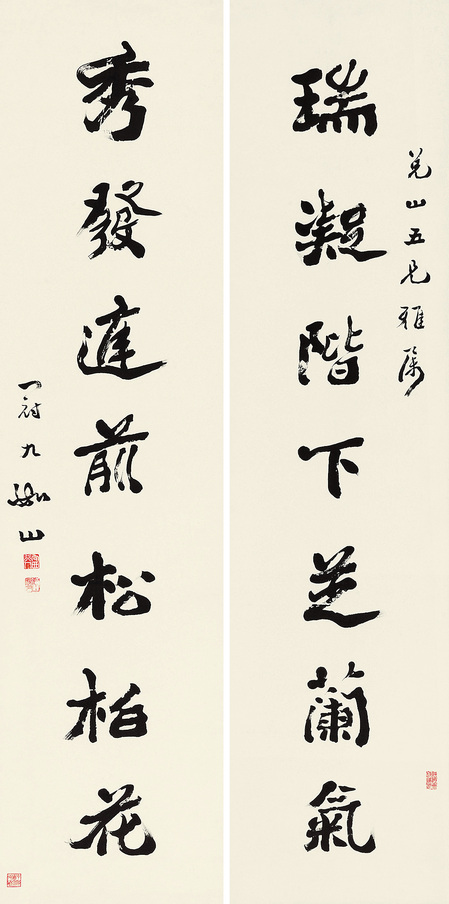 瑞凝階下芝蘭氣
山五兄雅屬
秀發庭前松柏花
冠九如山